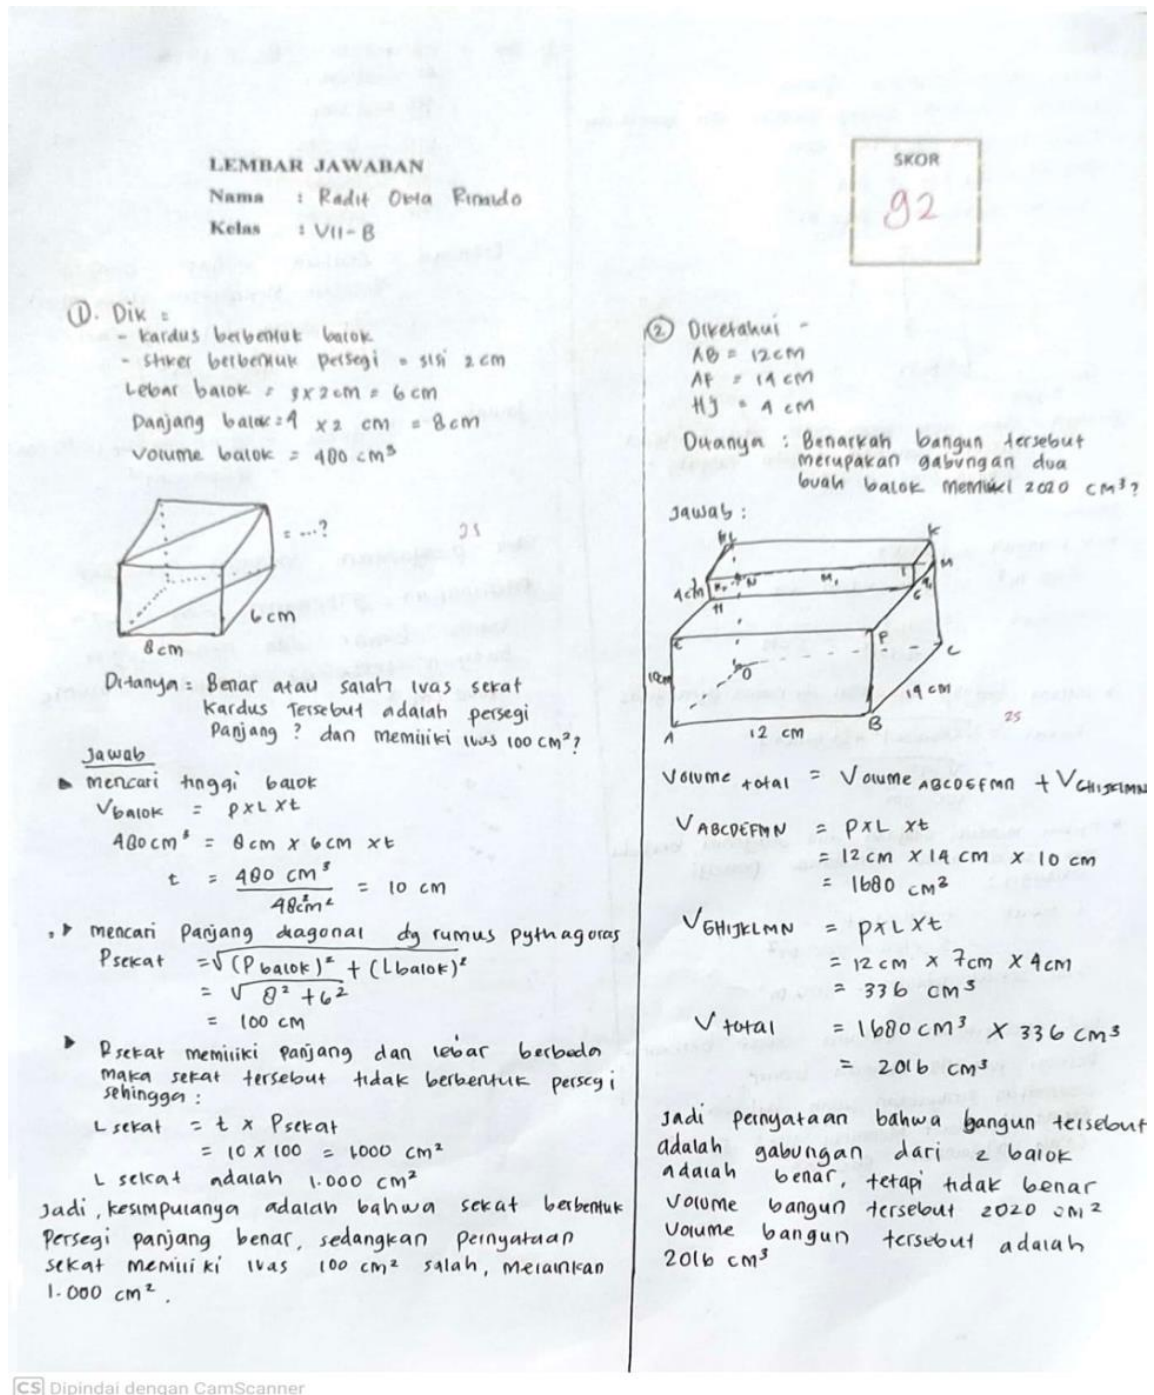 LEMBAR JAWABAN
Nama : Radit Okta
Kelas : VII-B
SKOR
92
①. Dik :
- kardus berbentuk balok
- stiker berbentuk persegi = sisi 2 cm
Lebar balok = 3x2cm = 6 cm
Panjang balok = 4 x2 cm = 8cm
volume balok = 480 cm³
= ...?
25
6 cm
8 cm
Ditanya = Benar atau salah luas sekat
kardus Tersebut adalah persegi
Panjang ? dan memiliki luas 100 cm²?
Jawab
mencari tinggi balok
Vbalok = P x L x t
480 cm³ = 8 cm x 6 cm x t
t = 480 cm³ / 48cm² = 10 cm
mencari Panjang diagonal dg rumus pythagoras
Psekat = √(Pbalok)² + (Lbalok)²
= √ 8² + 6²
= 100 cm
Psekat memiliki panjang dan lebar berbeda
maka sekat tersebut tidak berbentuk persegi
sehingga :
L sekat = t x Psekat
= 10 x 100 = 1000 cm²
L sekat adalah 1.000 cm²
Jadi, kesimpulanya adalah bahwa sekat berbentuk
Persegi panjang benar, sedangkan pernyataan
sekat memiliki luas 100 cm² salah, melainkan
1.000 cm².
② Diketahui -
AB = 12cm
AF = 14 cm
HJ = 4 cm
Ditanya : Benarkah bangun tersebut
merupakan gabungan dua
buah balok memiliki 2020 cm³?
Jawab :
K
N
M
4cm
H
I
G
E
F
D
C
10cm
14 cm
A
12 cm
B
25
Volume total = Volume ABCDEFMN + VGHIJKLMN
VABCDEFMN = P x L x t
= 12 cm x 14 cm x 10 cm
= 1680 cm³
VGHIJKLMN = P x L x t
= 12 cm x 7cm x 4cm
= 336 cm³
V total = 1680 cm³ x 336 cm³
= 2016 cm³
Jadi pernyataan bahwa bangun tersebut
adalah gabungan dari 2 balok
adalah benar, tetapi tidak benar
Volume bangun tersebut 2020 cm²
Volume bangun tersebut adalah
2016 cm³
CS Dipindai dengan CamScanner